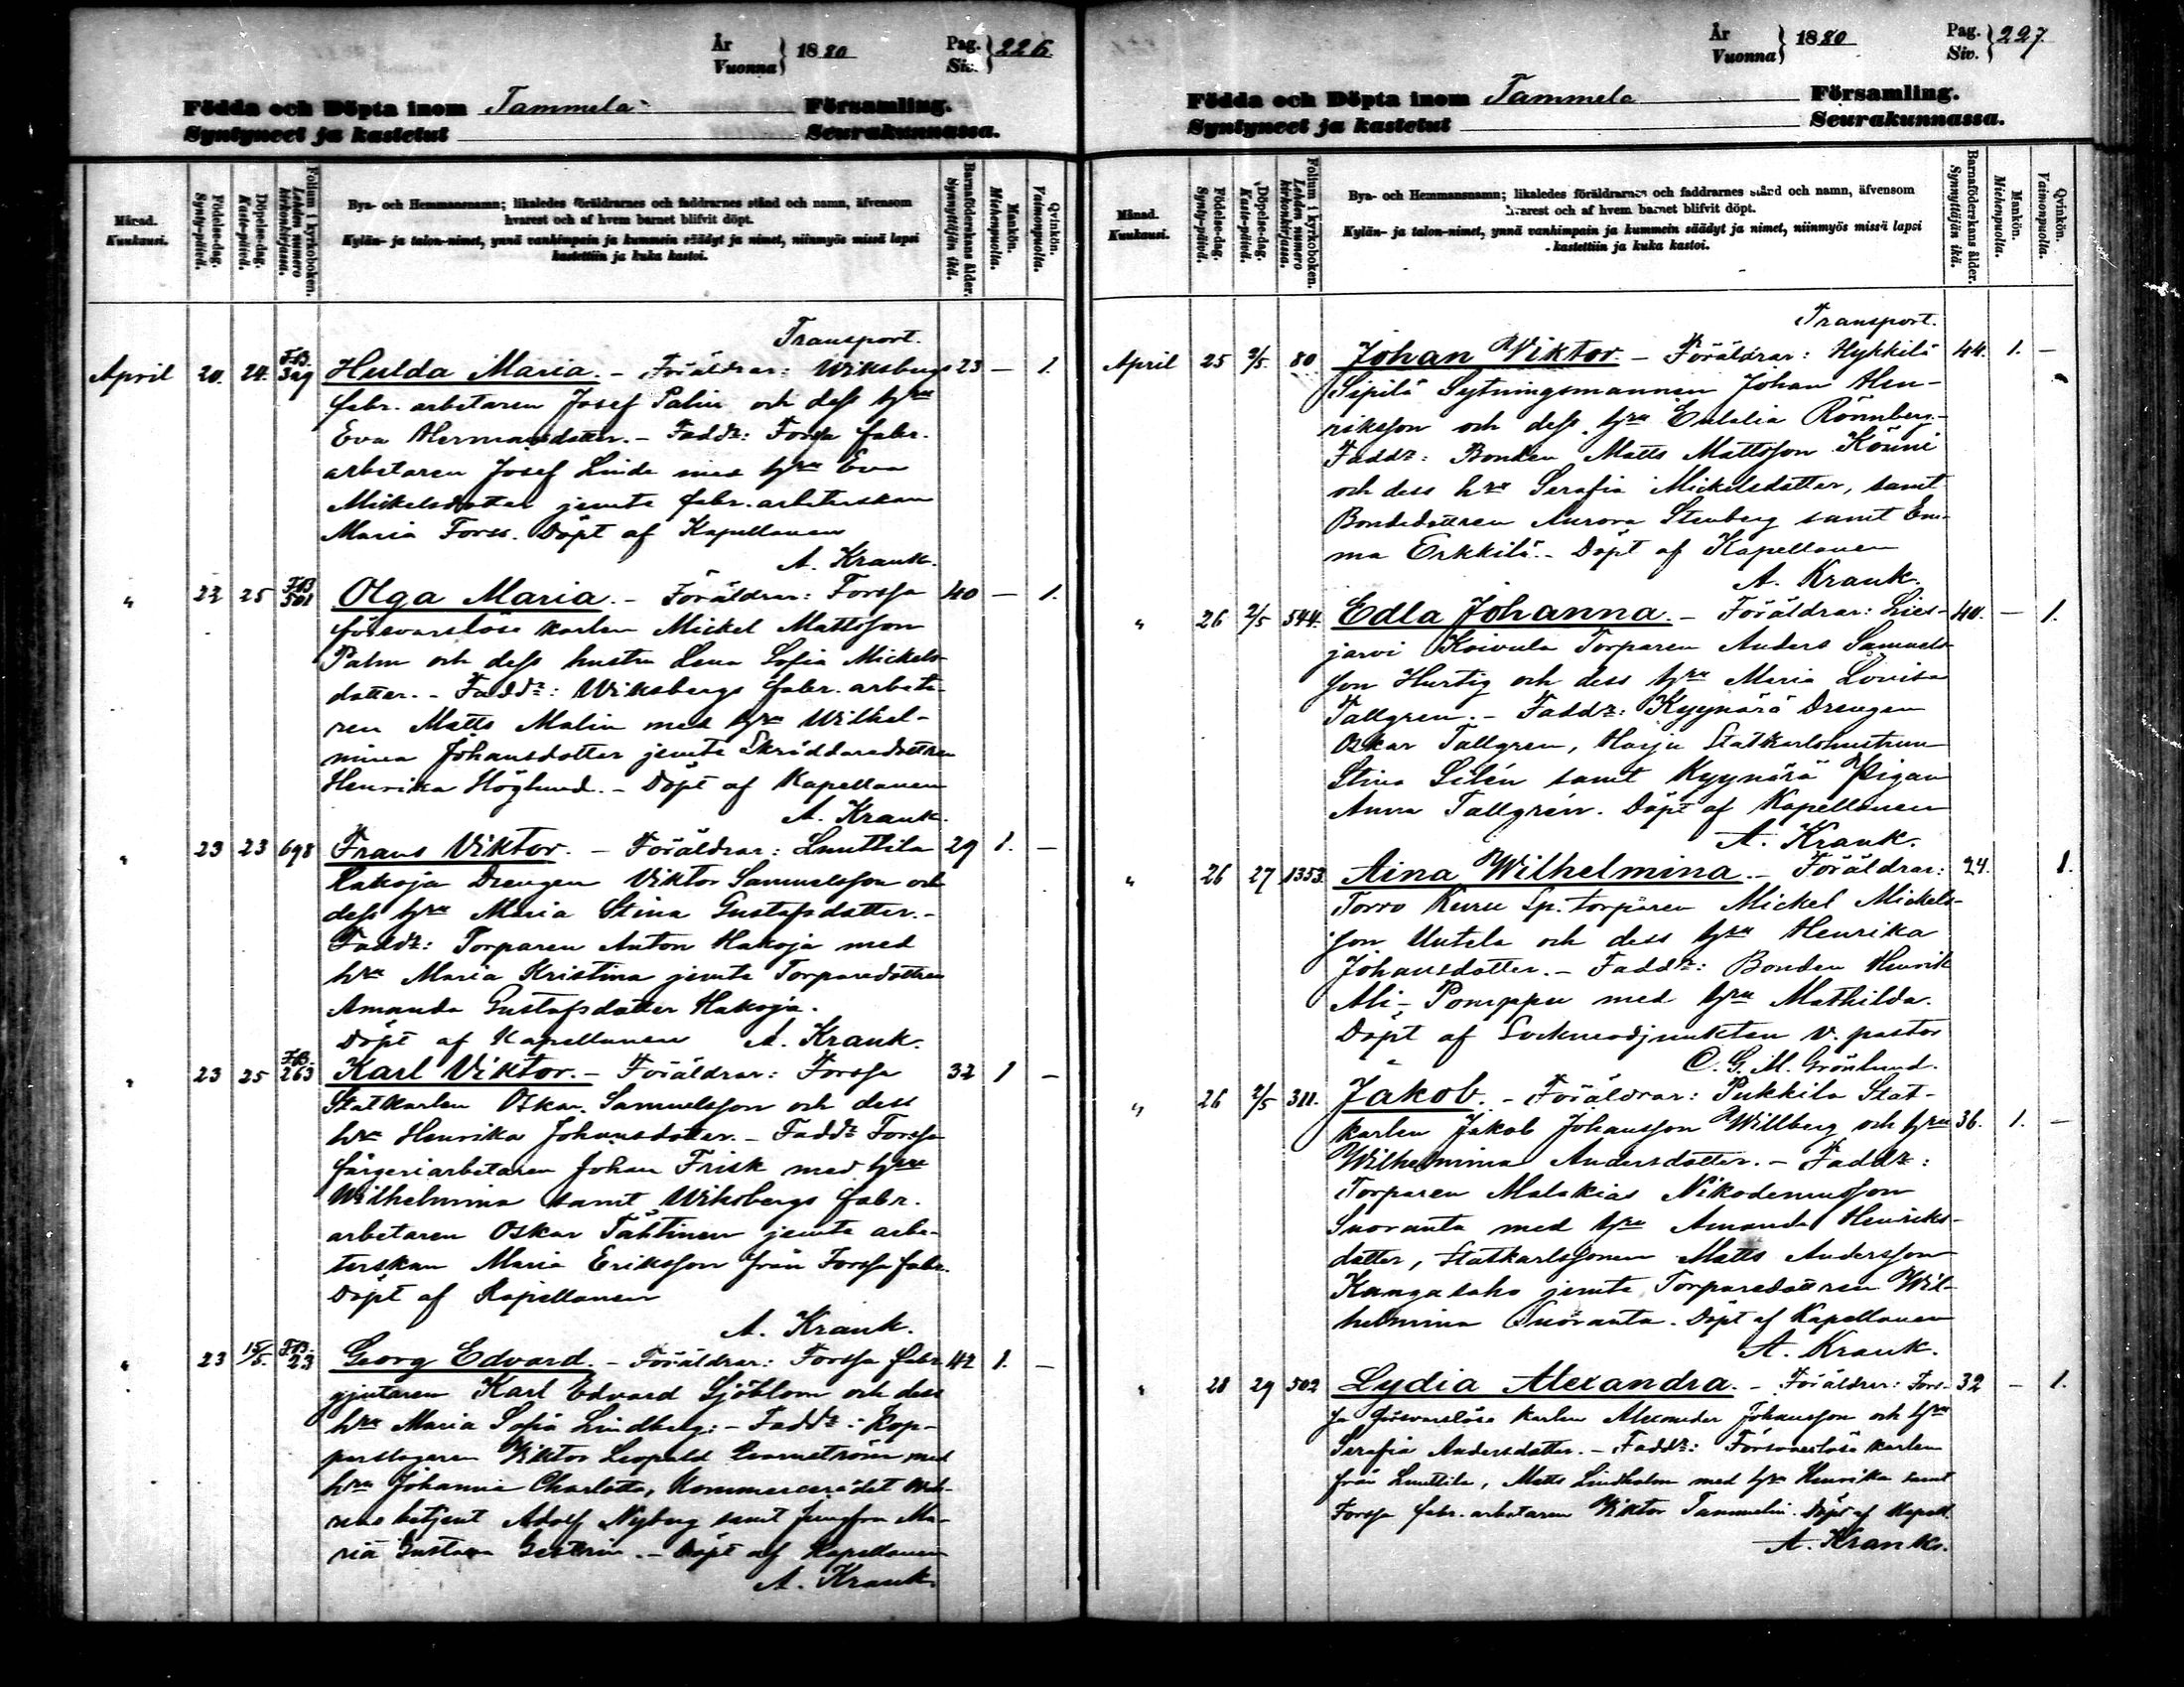 År
Vuonna } 1880
Pag.
Siv. } 226
Födda och Döpta inom Tammela Församling.
Syntyneet ja kastetut Seurakunnassa.
Månad.
Kuukausi.
Födelse-dag.
Synty-päivä.
Döpelse-dag.
Kaste-päivä.
Folium i kyrkoboken.
Lehden numero kirkonkirjassa.
Bya- och Hemmansnamn; likaledes föräldrarnes och faddrarnes stånd och namn, äfvensom
hvarest och af hvem barnet blifvit döpt.
Kylän- ja talon-nimet, ynnä vanhimpain ja kummein säädyt ja nimet, niinmyös missä lapsi
kastettiin ja kuka kastoi.
Barnaföderskans ålder.
Synnyttäjän ikä.
Mankön.
Miehenpuolta.
Qvinkön.
Vaimonpuolta.
Transport.
April 20. 24. FB. 329 Hulda Maria. - Föräldrar: Wiksbergs 23 — 1.
fabr. arbetaren Josef Palin och dess hru
Eva Hermansdotter. - Faddr: Forssa fabr.
arbetaren Josef Linde med hru Eva
Mickelsdotter jemte fabr. arbeterskan
Maria Forss. Döpt af Kapellanen
A. Krank.
" 22 25 FB 501 Olga Maria. - Föräldrar: Forssa 40 — 1.
försvarslöse karlen Mickel Mattsson
Palm och dess hustru Lena Sofia Mickels-
dotter. - Faddr: Wiksbergs fabr. arbeta-
ren Matts Malin med hru Wilhel-
mina Johansdotter jemte Skräddaredottren
Henrika Höglund. - Döpt af Kapellanen
A. Krank.
" 23 23 698 Frans Viktor. - Föräldrar: Linttila 29 1. —
Hakoja Drengen Viktor Samuelsson och
dess hru Maria Stina Gustafsdotter.-
Faddr: Torparen Anton Hakoja med
hru Maria Kristina jemte Torparedottren
Amanda Gustafsdotter Hakoja.
Döpt af Kapellanen A. Krank.
" 23 25 FB. 263 Karl Viktor. - Föräldrar: Forssa 32 1 —
Statkarlen Oskar Samuelsson och dess
hru Henrika Johansdotter. - Faddr Forssa
färgeriarbetaren Johan Frisk med hru
Wilhelmina samt Wiksbergs fabr.
arbetaren Oskar Tähtinen jemte arbe-
terskan Maria Eriksson från Forssa fabr.
Döpt af Kapellanen
A. Krank.
" 23 15/5. FB. 23 Georg Edvard. - Föräldrar: Forssa fabr. 42 1. —
gjutaren Karl Edvard Sjöblom och dess
hru Maria Sofia Lindberg: - Faddr: Kop-
parslagaren Viktor Leopold med
hru Johanna Charlotta, Kommerserådet
betjent Adolf Nyberg samt Jungfru Ma-
ria Gustava - Döpt af Kapellanen
A. Krank.
År
Vuonna } 1880
Pag.
Siv. } 227.
Födda och Döpta inom Tammela Församling.
Syntyneet ja kastetut Seurakunnassa.
Månad.
Kuukausi.
Födelse-dag.
Synty-päivä.
Döpelse-dag.
Kaste-päivä.
Folium i kyrkoboken.
Lehden numero kirkonkirjassa.
Bya- och Hemmansnamn; likaledes föräldrarnes och faddrarnes stånd och namn, äfvensom
hvarest och af hvem barnet blifvit döpt.
Kylän- ja talon-nimet, ynnä vanhimpain ja kummein säädyt ja nimet, niinmyös missä lapsi
kastettiin ja kuka kastoi.
Barnaföderskans ålder.
Synnyttäjän ikä.
Mankön.
Miehenpuolta.
Qvinkön.
Vaimonpuolta.
Transport.
April 25 2/5. 80 Johan Viktor. - Föräldrar: Hykkilä 44. 1. —
Sipilä Sytningsmannen Johan Hen-
riksson och dess hru Eulalia Rönnberg.-
Faddr: Bonden Matts Mattsson Könni
och dess hru Serafia Mickelsdotter, samt
Bondedottren Aurora Stenberg samt Em-
ma Erkkilä. - Döpt af Kapellanen
A. Krank.
" 26 2/5 544. Edla Johanna. - Föräldrar: Lies- 40. — 1.
järvi Koivula Torparen Anders Samuels-
son Hurtig och dess hru Maria Lovisa
Tallgren. - Faddr: Kyynärä Drengen
Oskar Tallgren, Harju Statkarlshustrun
Stina Silén samt Kyynärä Pigan
Anna Tallgrén. Döpt af Kapellanen
A. Krank.
" 26 27 1353. Aina Wilhelmina. - Föräldrar: 24. 1.
Torro Kuru Sp. torparen Mickel Mickels-
son Uutela och dess hru Henrika
Johansdotter. - Faddr: Bonden Henrik
Ali-Pomppu med hru Mathilda.
Döpt af Sockneadjunkten v. pastor
C. G. M. Grönlund.
" 26 2/5 311. Jakob. - Föräldrar: Pukkila Stat-
karlen Jakob Johansson Willberg och hru 36. 1. —
Wilhelmina Andersdotter. - Faddr:
Torparen Malakias Nikodemusson
Suoranta med hru Amanda Henriks-
dotter, Statkarlssonen Matts Andersson
Kangasaho jemte Torparedottren Wil-
helmina Suoranta. Döpt af Kapellanen
A. Krank.
" 28 29 502 Lydia Alexandra. - Föräldrar: Fors- 32 — 1.
sa försvarslöse karlen Alexander Johansson och hru
Serafia Andersdotter. - Faddr: Försvarslöse karlen
från Linttila, Matts Lindholm med hru Henrika samt
Forssa fabr. arbetaren Viktor Tammelin. Döpt af Kapell.
A. Krank.